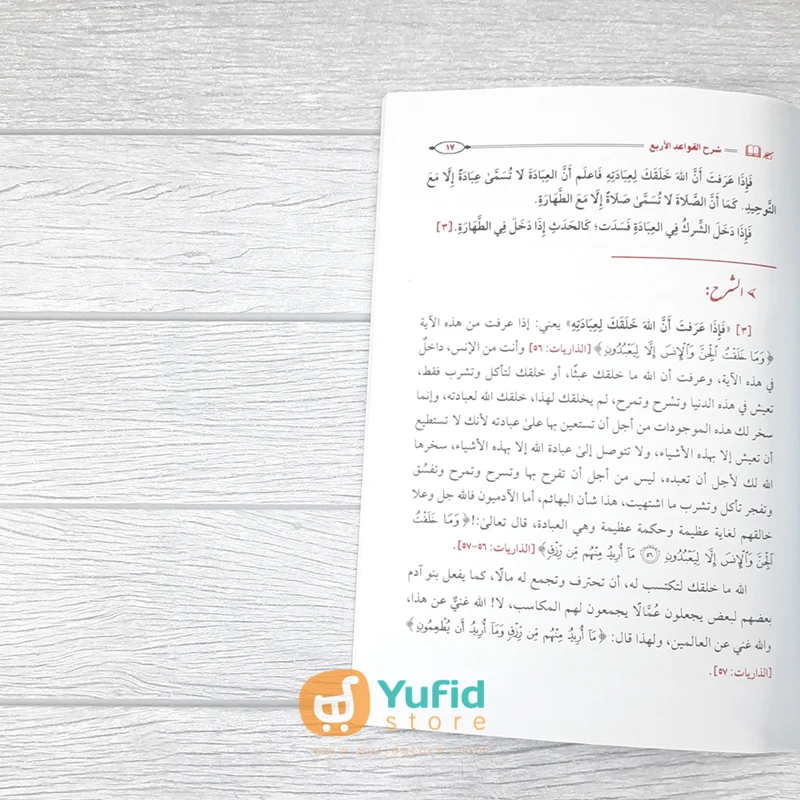 شرح القواعد الأربع
١٧
فَإِذَا عَرَفتَ أَنَّ اللهَ خَلَقَكَ لِعِبَادَتِهِ فَاعلَم أَنَّ العِبَادَةَ لا تُسَمَّىٰ عِبَادَةً إِلَّا مَعَ
التَّوحِيدِ. كَمَا أَنَّ الصَّلاةَ لا تُسَمَّىٰ صَلَاةً إِلَّا مَعَ الطَّهَارَةِ.
فَإِذَا دَخَلَ الشِّركُ فِي العِبَادَةِ فَسَدَت؛ كَالحَدَثِ إِذَا دَخَلَ فِي الطَّهَارَةِ.[٣]
الشرح:
[٣] «فَإِذَا عَرَفتَ أَنَّ اللهَ خَلَقَكَ لِعِبَادَتِهِ» يعني: إذا عرفت من هذه الآية
﴿وَمَا خَلَقْتُ ٱلْجِنَّ وَٱلْإِنسَ إِلَّا لِيَعْبُدُونِ﴾ [الذاريات: ٥٦] وأنت من الإنس، داخلٌ
في هذه الآية، وعرفت أن الله ما خلقك عبثًا، أو خلقك لتأكل وتشرب فقط،
تعيش في هذه الدنيا وتسرح وتمرح، لم يخلقك لهذا، خلقك الله لعبادته، وإنما
سخر لك هذه الموجودات من أجل أن تستعين بها علىٰ عبادته لأنك لا تستطيع
أن تعيش إلا بهذه الأشياء، ولا تتوصل إلىٰ عبادة الله إلا بهذه الأشياء، سخرها
الله لك لأجل أن تعبده، ليس من أجل أن تفرح بها وتسرح وتمرح وتفسُق
وتفجر تأكل وتشرب ما اشتهيت، هذا شأن البهائم، أما الآدميون فالله جل وعلا
خالقهم لغاية عظيمة وحكمة عظيمة وهي العبادة، قال تعالىٰ:!﴿وَمَا خَلَقْتُ
ٱلْجِنَّ وَٱلْإِنسَ إِلَّا لِيَعْبُدُونِ ٥٦ مَآ أُرِيدُ مِنْهُم مِّن رِّزْقٍ﴾ [الذاريات: ٥٦-٥٧].
الله ما خلقك لتكتسب له، أن تحترف وتجمع له مالًا، كما يفعل بنو آدم
بعضهم لبعض يجعلون عُمَّالًا يجمعون لهم المكاسب، لا! الله غنيٌّ عن هذا،
والله غني عن العالمين، ولهذا قال: ﴿مَآ أُرِيدُ مِنْهُم مِّن رِّزْقٍ وَمَآ أُرِيدُ أَن يُطْعِمُونِ﴾
[الذاريات: ٥٧].
Yufid
store
www.yufidstore.com